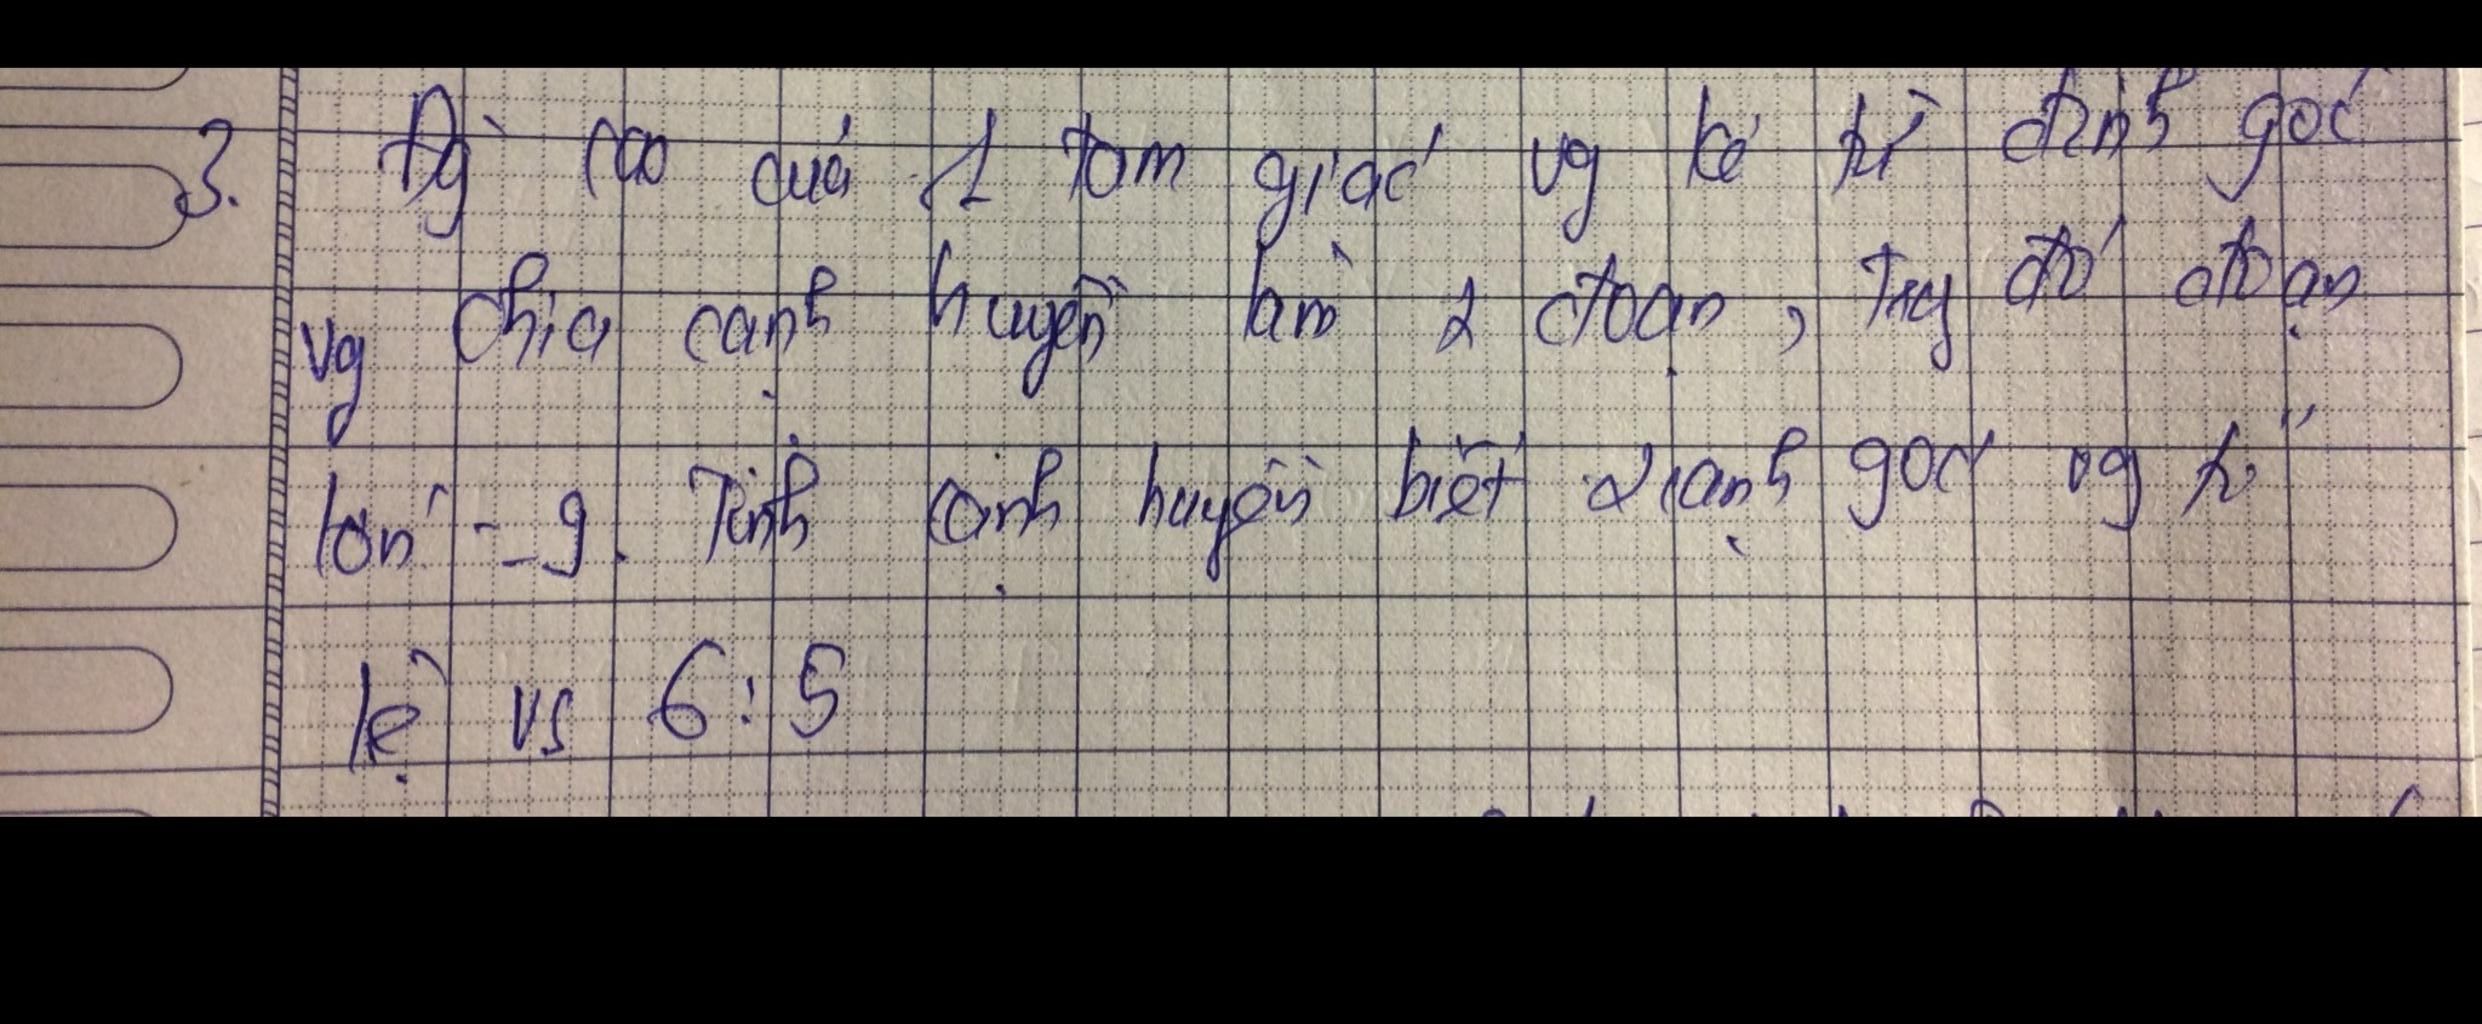 3. Đg cao của 1 tam giác vg kẻ từ đỉnh góc
vg chia cạnh huyền làm 2 đoạn, trg đó đoạn
lớn = 9. Tính cạnh huyền biết 2 cạnh góc vg tỉ
lệ vs 6:5